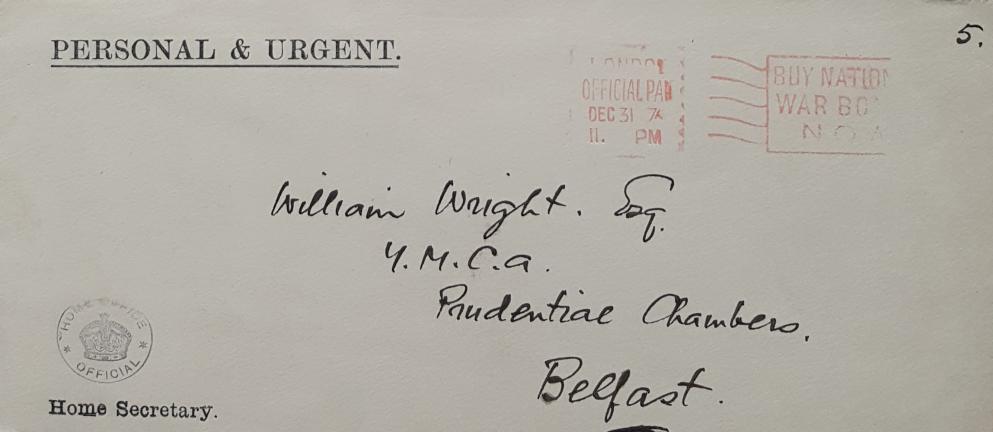 PERSONAL & URGENT.
5.
LONDON
OFFICIAL PAID
DEC 31
11. PM
BUY NATION
WAR BO
N O
William Wright. Esq.
Y.M.C.a.
Prudential Chambers.
Belfast.
HOME OFFICE
* OFFICIAL *
Home Secretary.